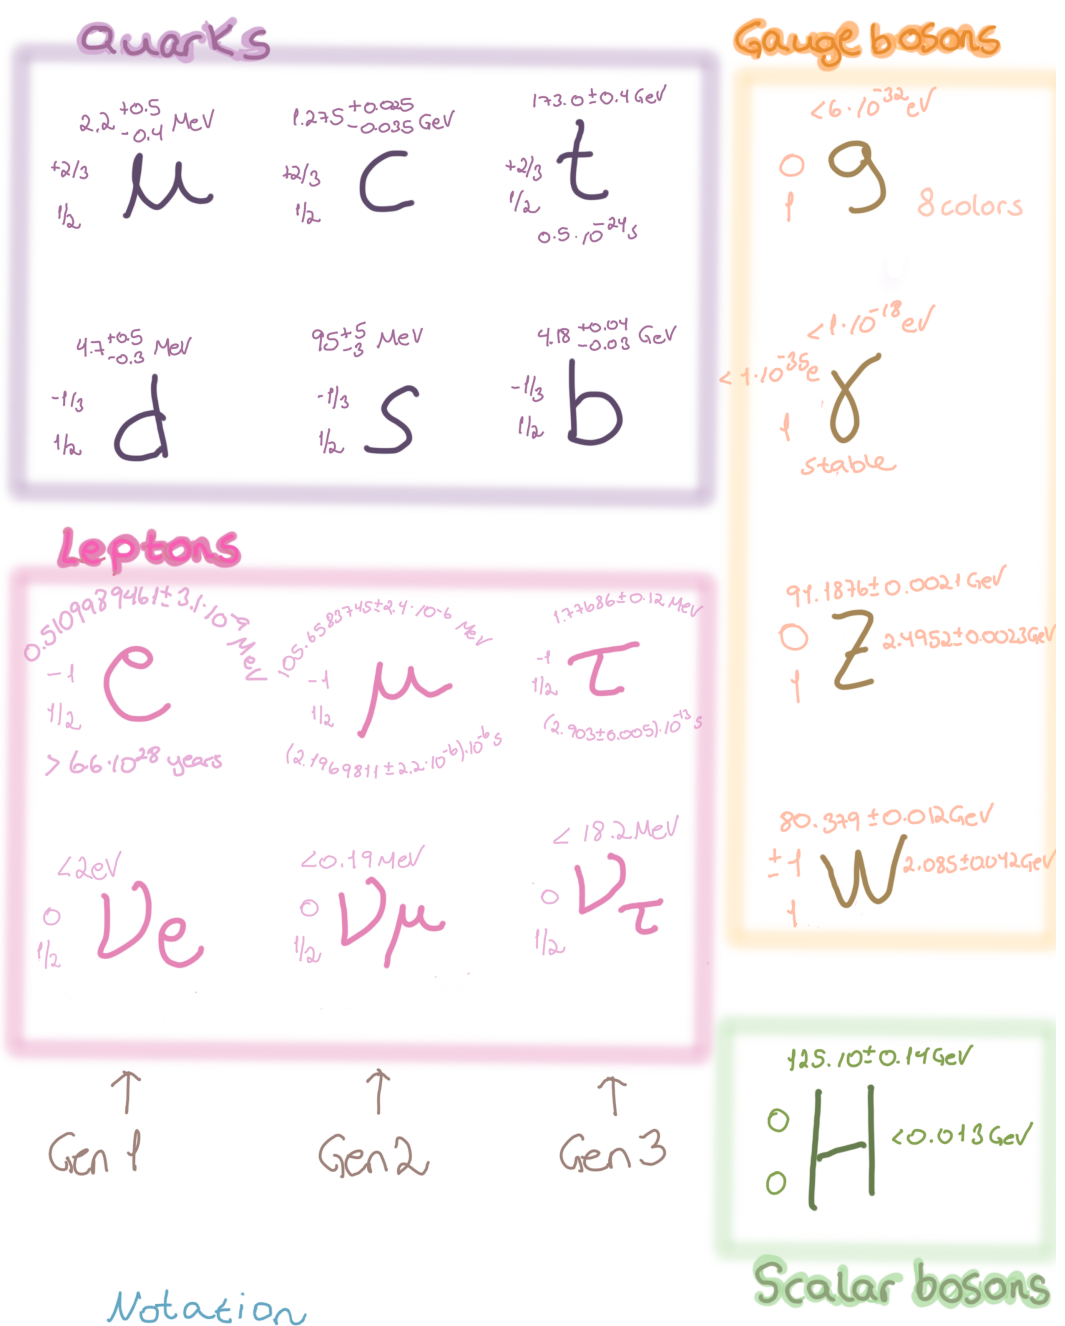 Quarks
2.2 +0.5 -0.4 MeV
+2/3
1/2
u
1.275 +0.025 -0.035 GeV
+2/3
1/2
c
173.0±0.4 GeV
+2/3
1/2
t
0.5·10^-24 s
4.7 +0.5 -0.3 MeV
-1/3
1/2
d
95 +5 -3 MeV
-1/3
1/2
s
4.18 +0.04 -0.03 GeV
-1/3
1/2
b
Leptons
0.5109989461±3.1·10^-9 MeV
-1
1/2
e
>6.6·10^28 years
105.6583745±2.4·10^-6 MeV
-1
1/2
μ
(2.1969811±2.2·10^-6)·10^-6 s
1.77686±0.12 MeV
-1
1/2
τ
(2.903±0.005)·10^-13 s
<2eV
0
1/2
νe
<0.19 MeV
0
1/2
νμ
< 18.2 MeV
0
1/2
ντ
Gen 1
Gen 2
Gen 3
Gauge bosons
<6·10^-32 eV
0
1
g
8 colors
<1·10^-18 eV
<1·10^-35 e
1
γ
stable
91.1876±0.0021 GeV
0
1
Z
2.4952±0.0023 GeV
80.379±0.012 GeV
±1
1
W
2.085±0.042 GeV
125.10±0.14 GeV
0
0
H
<0.013 GeV
Scalar bosons
Notation